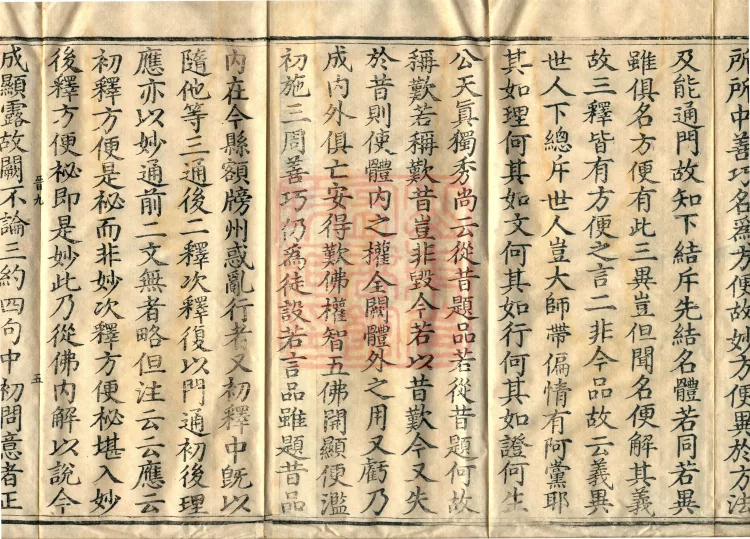 所所中善巧名為方便故妙方便異於方法
及能通門故知下結斥先結名體若同若異
雖俱名方便有此三異豈但聞名便解其義
故三釋皆有方便之言二非今品故云義異
世人下總斥世人豈大師帶偏情有阿黨耶
其如理何其如文何其如行何其如證何生
公天真獨秀尚云從昔題品若從昔題何故
稱歎若稱歎昔豈非毀今若以昔歎今又失
於昔則使體內之權全闕體外之用又虧乃
成內外俱亡安得歎佛權智五佛開顯便濫
初施三周善巧仍為徒設若言品雖題昔品
內在今縣額牓州惑亂行者又初釋中既以
隨他等三通後二釋次釋復以門通初後理
應亦以妙通前二文無者略但注云云應云
初釋方便是祕而非妙次釋方便祕堪入妙
後釋方便祕即是妙此乃從佛內解以說今
晉九
五
成顯露故闕不論三約四句中初問意者正